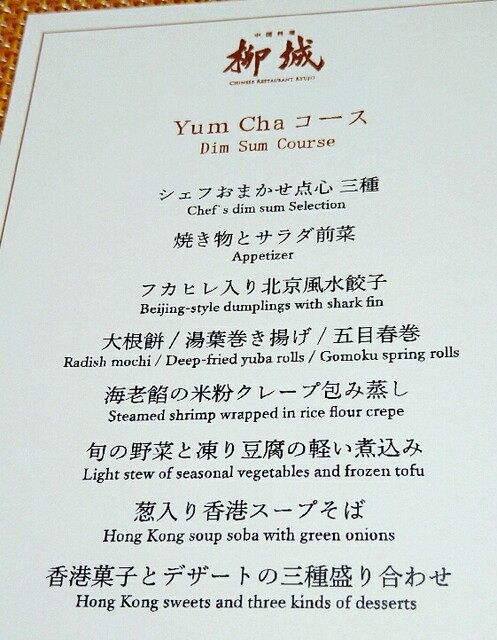 中国料理
柳城
CHINESE RESTAURANT RYUJO
Yum Cha コース
Dim Sum Course
シェフおまかせ点心 三種
Chef`s dim sum Selection
焼き物とサラダ前菜
Appetizer
フカヒレ入り北京風水餃子
Beijing-style dumplings with shark fin
大根餅 / 湯葉巻き揚げ / 五目春巻
Radish mochi / Deep-fried yuba rolls / Gomoku spring rolls
海老餡の米粉クレープ包み蒸し
Steamed shrimp wrapped in rice flour crepe
旬の野菜と凍り豆腐の軽い煮込み
Light stew of seasonal vegetables and frozen tofu
葱入り香港スープそば
Hong Kong soup soba with green onions
香港菓子とデザートの三種盛り合わせ
Hong Kong sweets and three kinds of desserts